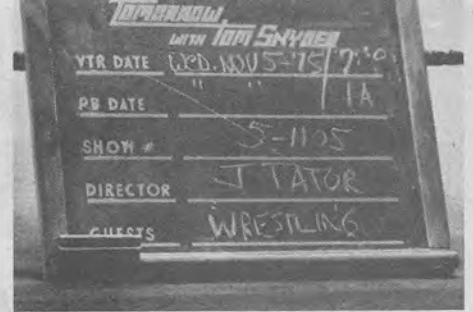 TOMORROW
WITH TOM SNYDER
VTR DATE WED. NOV 5-75 / 7:30
PB DATE " " 1A
SHOW # 5-1105
DIRECTOR J TATOR
GUESTS WRESTLING